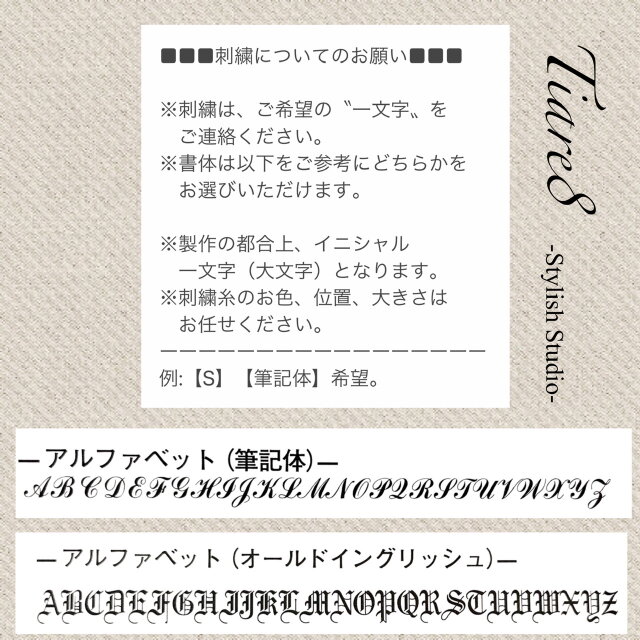 ■■■刺繍についてのお願い■■■
※刺繍は、ご希望の〝一文字〟を
ご連絡ください。
※書体は以下をご参考にどちらかを
お選びいただけます。
※製作の都合上、イニシャル
一文字（大文字）となります。
※刺繍糸のお色、位置、大きさは
お任せください。
ーーーーーーーーーーーーーーーーー
例:【S】【筆記体】希望。
Tiare8
-Stylish Studio-
ーアルファベット（筆記体）ー
ABCDEFGHIJKLMNOPQRSTUVWXYZ
ーアルファベット（オールドイングリッシュ）ー
ABCDEFGHIJKLMNOPQRSTUVWXYZ